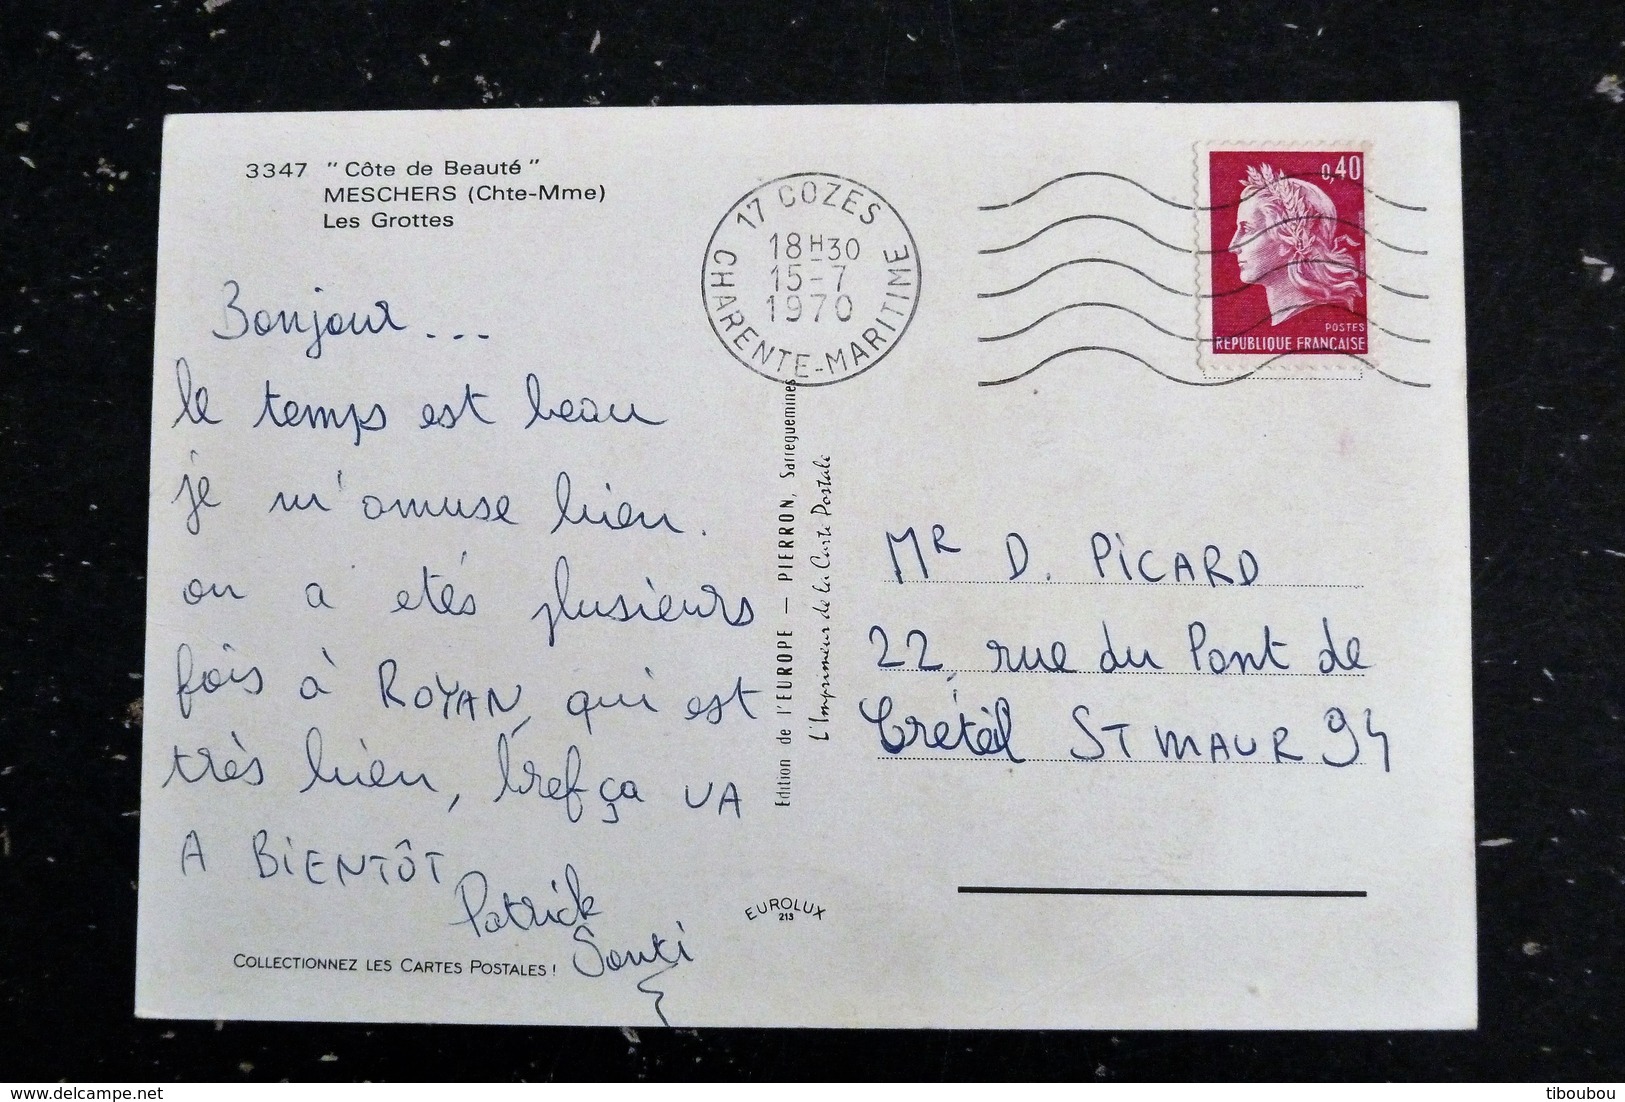 3347 " Côte de Beauté "
MESCHERS (Chte-Mme)
Les Grottes
Bonjour ...
le temps est beau
je m'amuse bien.
on a etés plusieurs
fois à ROYAN, qui est
très bien, bref ça VA
A BIENTÔT
Patrick
COLLECTIONNEZ LES CARTES POSTALES !
17 COZES
18H30
15-7
1970
CHARENTE-MARITIME
Edition de l'EUROPE — PIERRON, Sarreguemines
L'Imprimeur de la Carte Postale
EUROLUX
213
0,40
POSTES
REPUBLIQUE FRANCAISE
Mr D. PICARD
22, rue du Pont de
Créteil ST MAUR 94
delcampe.net
tiboubou